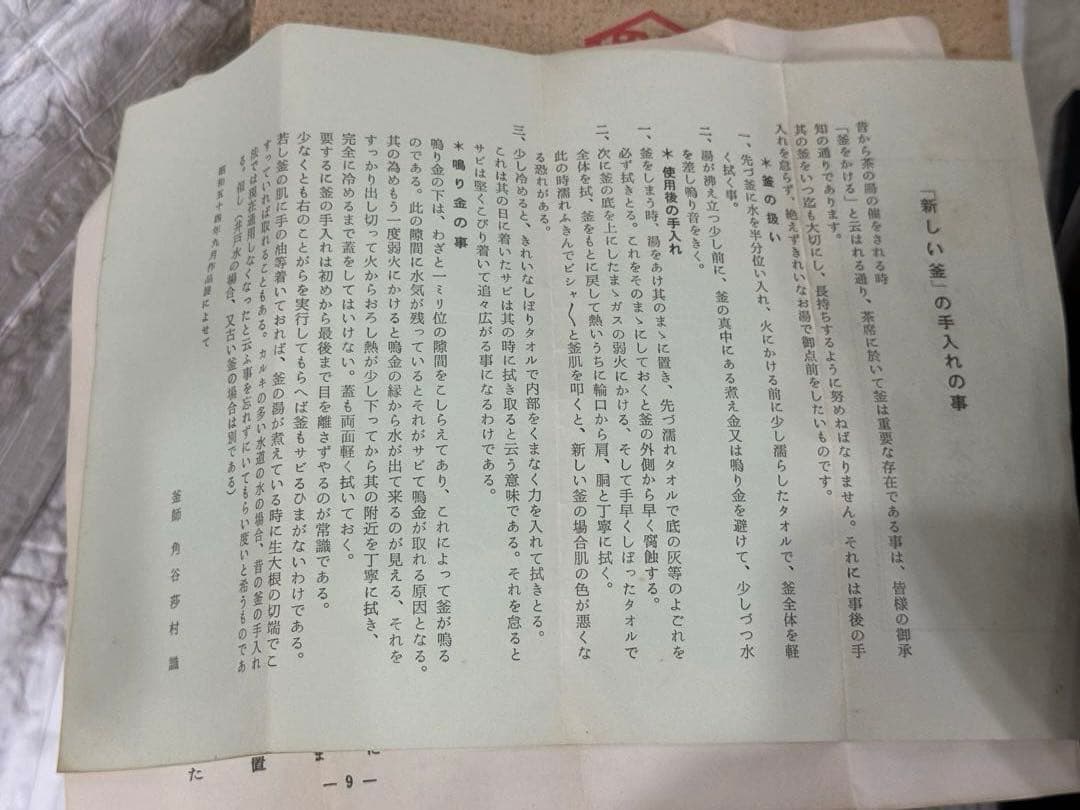 「新しい釜」の手入れの事
昔から茶の湯の催をされる時
「釜をかける」と云はれる通り、茶席に於いて釜は重要な存在である事は、皆様の御承
知の通りであります。
其の釜をいつ迄も大切にし、長持ちするように努めねばなりません。それには事後の手
入れを怠らず、絶えずきれいなお湯で御点前をしたいものです。
＊釜の扱い
一、先づ釜に水を半分位い入れ、火にかける前に少し濡らしたタオルで、釜全体を軽
く拭く事。
二、湯が沸え立つ少し前に、釜の真中にある煮え金又は鳴り金を避けて、少しづつ水
を差し鳴り音をきく。
＊使用後の手入れ
一、釜をしまう時、湯をあけ其のまゝに置き、先づ濡れタオルで底の灰等のよごれを
必ず拭きとる。これをそのまゝにしておくと釜の外側から早く腐蝕する。
二、次に釜の底を上にしたまゝガスの弱火にかける、そして手早くしぼったタオルで
全体を拭、釜をもとに戻して熱いうちに輪口から肩、胴と丁寧に拭く。
此の時濡れふきんでピシャ〳〵と釜肌を叩くと、新しい釜の場合肌の色が悪くな
る恐れがある。
三、少し冷めると、きれいなしぼりタオルで内部をくまなく力を入れて拭きとる。
これは其の日に着いたサビは其の時に拭き取ると云う意味である。それを怠ると
サビは堅くこびり着いて追々広がる事になるわけである。
＊鳴り金の事
鳴り金の下は、わざと一ミリ位の隙間をこしらえてあり、これによって釜が鳴る
のである。此の隙間に水気が残っているとそれがサビて鳴金が取れる原因となる。
其の為めもう一度弱火にかけると鳴金の縁から水が出て来るのが見える、それを
すっかり出し切って火からおろし熱が少し下ってから其の附近を丁寧に拭き、
完全に冷めるまで蓋をしてはいけない。蓋も両面軽く拭いておく。
要するに釜の手入れは初めから最後まで目を離さずやるのが常識である。
少なくとも右のことがらを実行してもらへば釜もサビるひまがないわけである。
若し釜の肌に手の油等着いておれば、釜の湯が煮えている時に生大根の切端でこ
すっていれば取れることもある。カルキの多い水道の水の場合、昔の釜の手入れ
法では現在通用しなくなったと云ふ事を忘れずにいてもらい度いと希うものであ
る。但し（井戸水の場合、又古い釜の場合は別である）
昭和五十四年九月作品展によせて
釜師 角谷莎村 識
に
ま
置
た
— 9 —